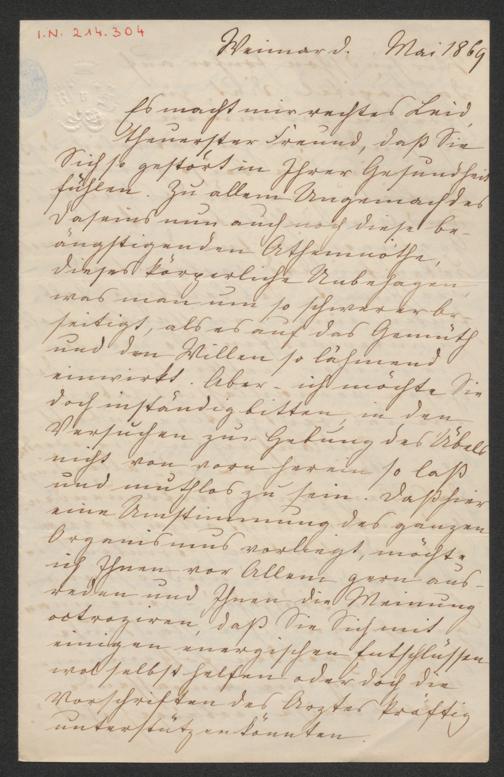 I.N. 214.304
Weimar d. Mai 1869
Es macht mir rechtes Leid,
theuerster Freund, daß Sie
Sich so gestört in Ihrer Gesundheit
fühlen. Zu allem Ungemach des
Daseins nun auch noch diese be-
ängstigenden Athemnöthe,
dieses körperliche Unbehagen,
was man um so schwerer be-
seitigt, als es auf das Gemüth
und den Willen so lähmend
einwirkt. Aber – ich möchte Sie
doch inständig bitten, in den
Versuchen zur Hebung des Übels
nicht von vorn herein so laß
und muthlos zu sein. Daß hier
eine Umstimmung des ganzen
Organismus vorliegt, möchte
ich Ihnen vor Allem gern aus-
reden und Ihnen die Meinung
octroyiren, daß Sie Sich mit
einigen energischen Entschlüssen
wol selbst helfen oder doch die
Vorschriften des Arztes kräftig
unterstützen könnten.